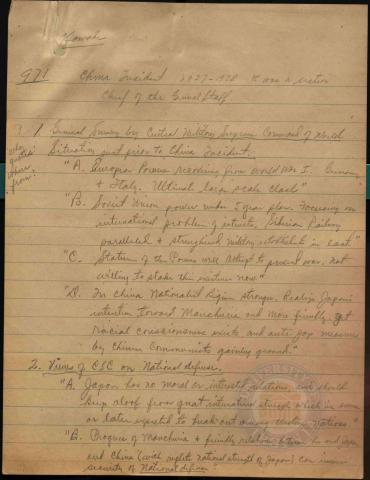 971 China Incident 1927-1928 K was a section
Chief of the General Staff
? 1. General Survey by Central Military Supreme Command of World
Situation just prior to China Incident.
who
quotes?
where
from?
"A. European Powers recovering from World War I. Germany
& Italy. Ultimate large scale clash"
"B. Soviet Union power under 5 year plan. Focusing on
international problem of interests, Siberian Railway
paralleled & strengthened military establishments in east"
"C. Status of the Powers will attempt to prevent war, not
willing to stake this matter now"
"D. In China Nationalist Regime stronger. Realize Japan's
intention toward Manchuria and more friendly, yet
racial consciousness exists and anti Jap measures
by Chinese Communists gaining ground."
2. Views of CSC on National defense.
"A. Japan has no moral or interest relations and should
keep aloof from great international struggle which is soon
or later expected to break out among western nations"
"B. Progress of Manchuria & friendly relations between her and Japan
and China (with complete national strength of Japan) can insure
security of National defense"